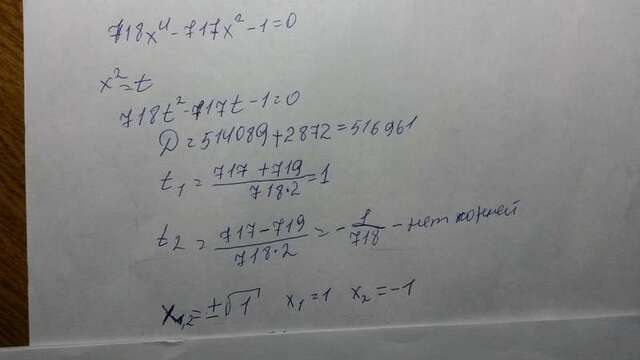 718x⁴-717x²-1=0
x²=t
718t²-717t-1=0
D=514089+2872=516961
t₁ = (717+719)/(718·2) = 1
t₂ = (717-719)/(718·2) = -1/718 - нет корней
x₁,₂=±√1 x₁=1 x₂=-1